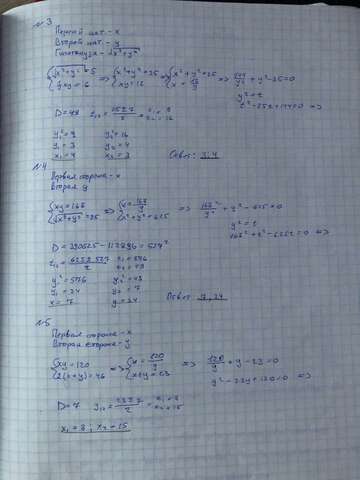 №3
Первый кат. - x
Второй кат. - y
Гипотенуза - √x²+y²
{√x²+y² = 5 => {x²+y²=25 => {x²+y²=25 => 144/y² + y² - 25 = 0
xy = 12 x = 12/y
y² = t
t² - 25t + 144 = 0 =>
D = 49 t₁,₂ = 25±7/2 = t₁ = 9 t₂ = 16
y₁² = 9 y₂² = 16
y₁ = 3 y₂ = 4
x₁ = 4 x₂ = 3 Ответ: 3; 4
№4
Первая сторона - x
Вторая y
{xy = 168 => {x = 168/y => 168²/y² + y² - 625 = 0
√x²+y² = 25 x² + y² = 625
y² = t
168² + t² - 625t = 0 =>
D = 390625 - 112896 = 527²
t₁,₂ = 625±527/2 t₁ = 576 t₂ = 49
y₁² = 576 y₂² = 49
y₁ = 24 y₂ = 7
x = 7 x = 24 Ответ: 7, 24
№5
Первая сторона - x
Вторая сторона - y
{xy = 120 => {x = 120/y => 120/y + y - 23 = 0
2(x+y) = 46 x + y = 23
y² - 23y + 120 = 0 =>
D = 7 y₁,₂ = 23±7/2 = x₁ = 8 x₂ = 15
x₁ = 8; x₂ = 15